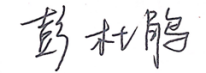 彭杜鹃